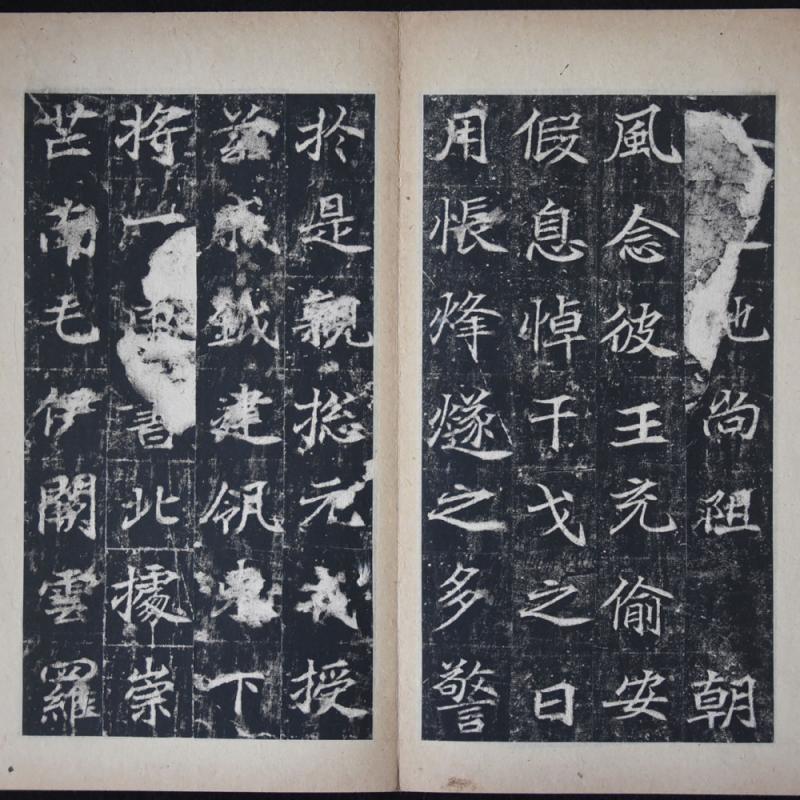 地尚阻朝
風念彼王充偷安
假息悼干戈之日
用悵烽燧之多警
於是親揔元戎授
茲鉞建瓴東下
將一書北據崇
芒南屯伊闕雲羅